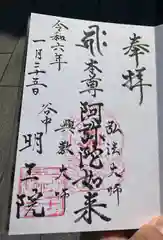 奉拝
弘法大師
本尊阿弥陀如来
興教大師
令和六年
一月二十五日
谷中
明王院